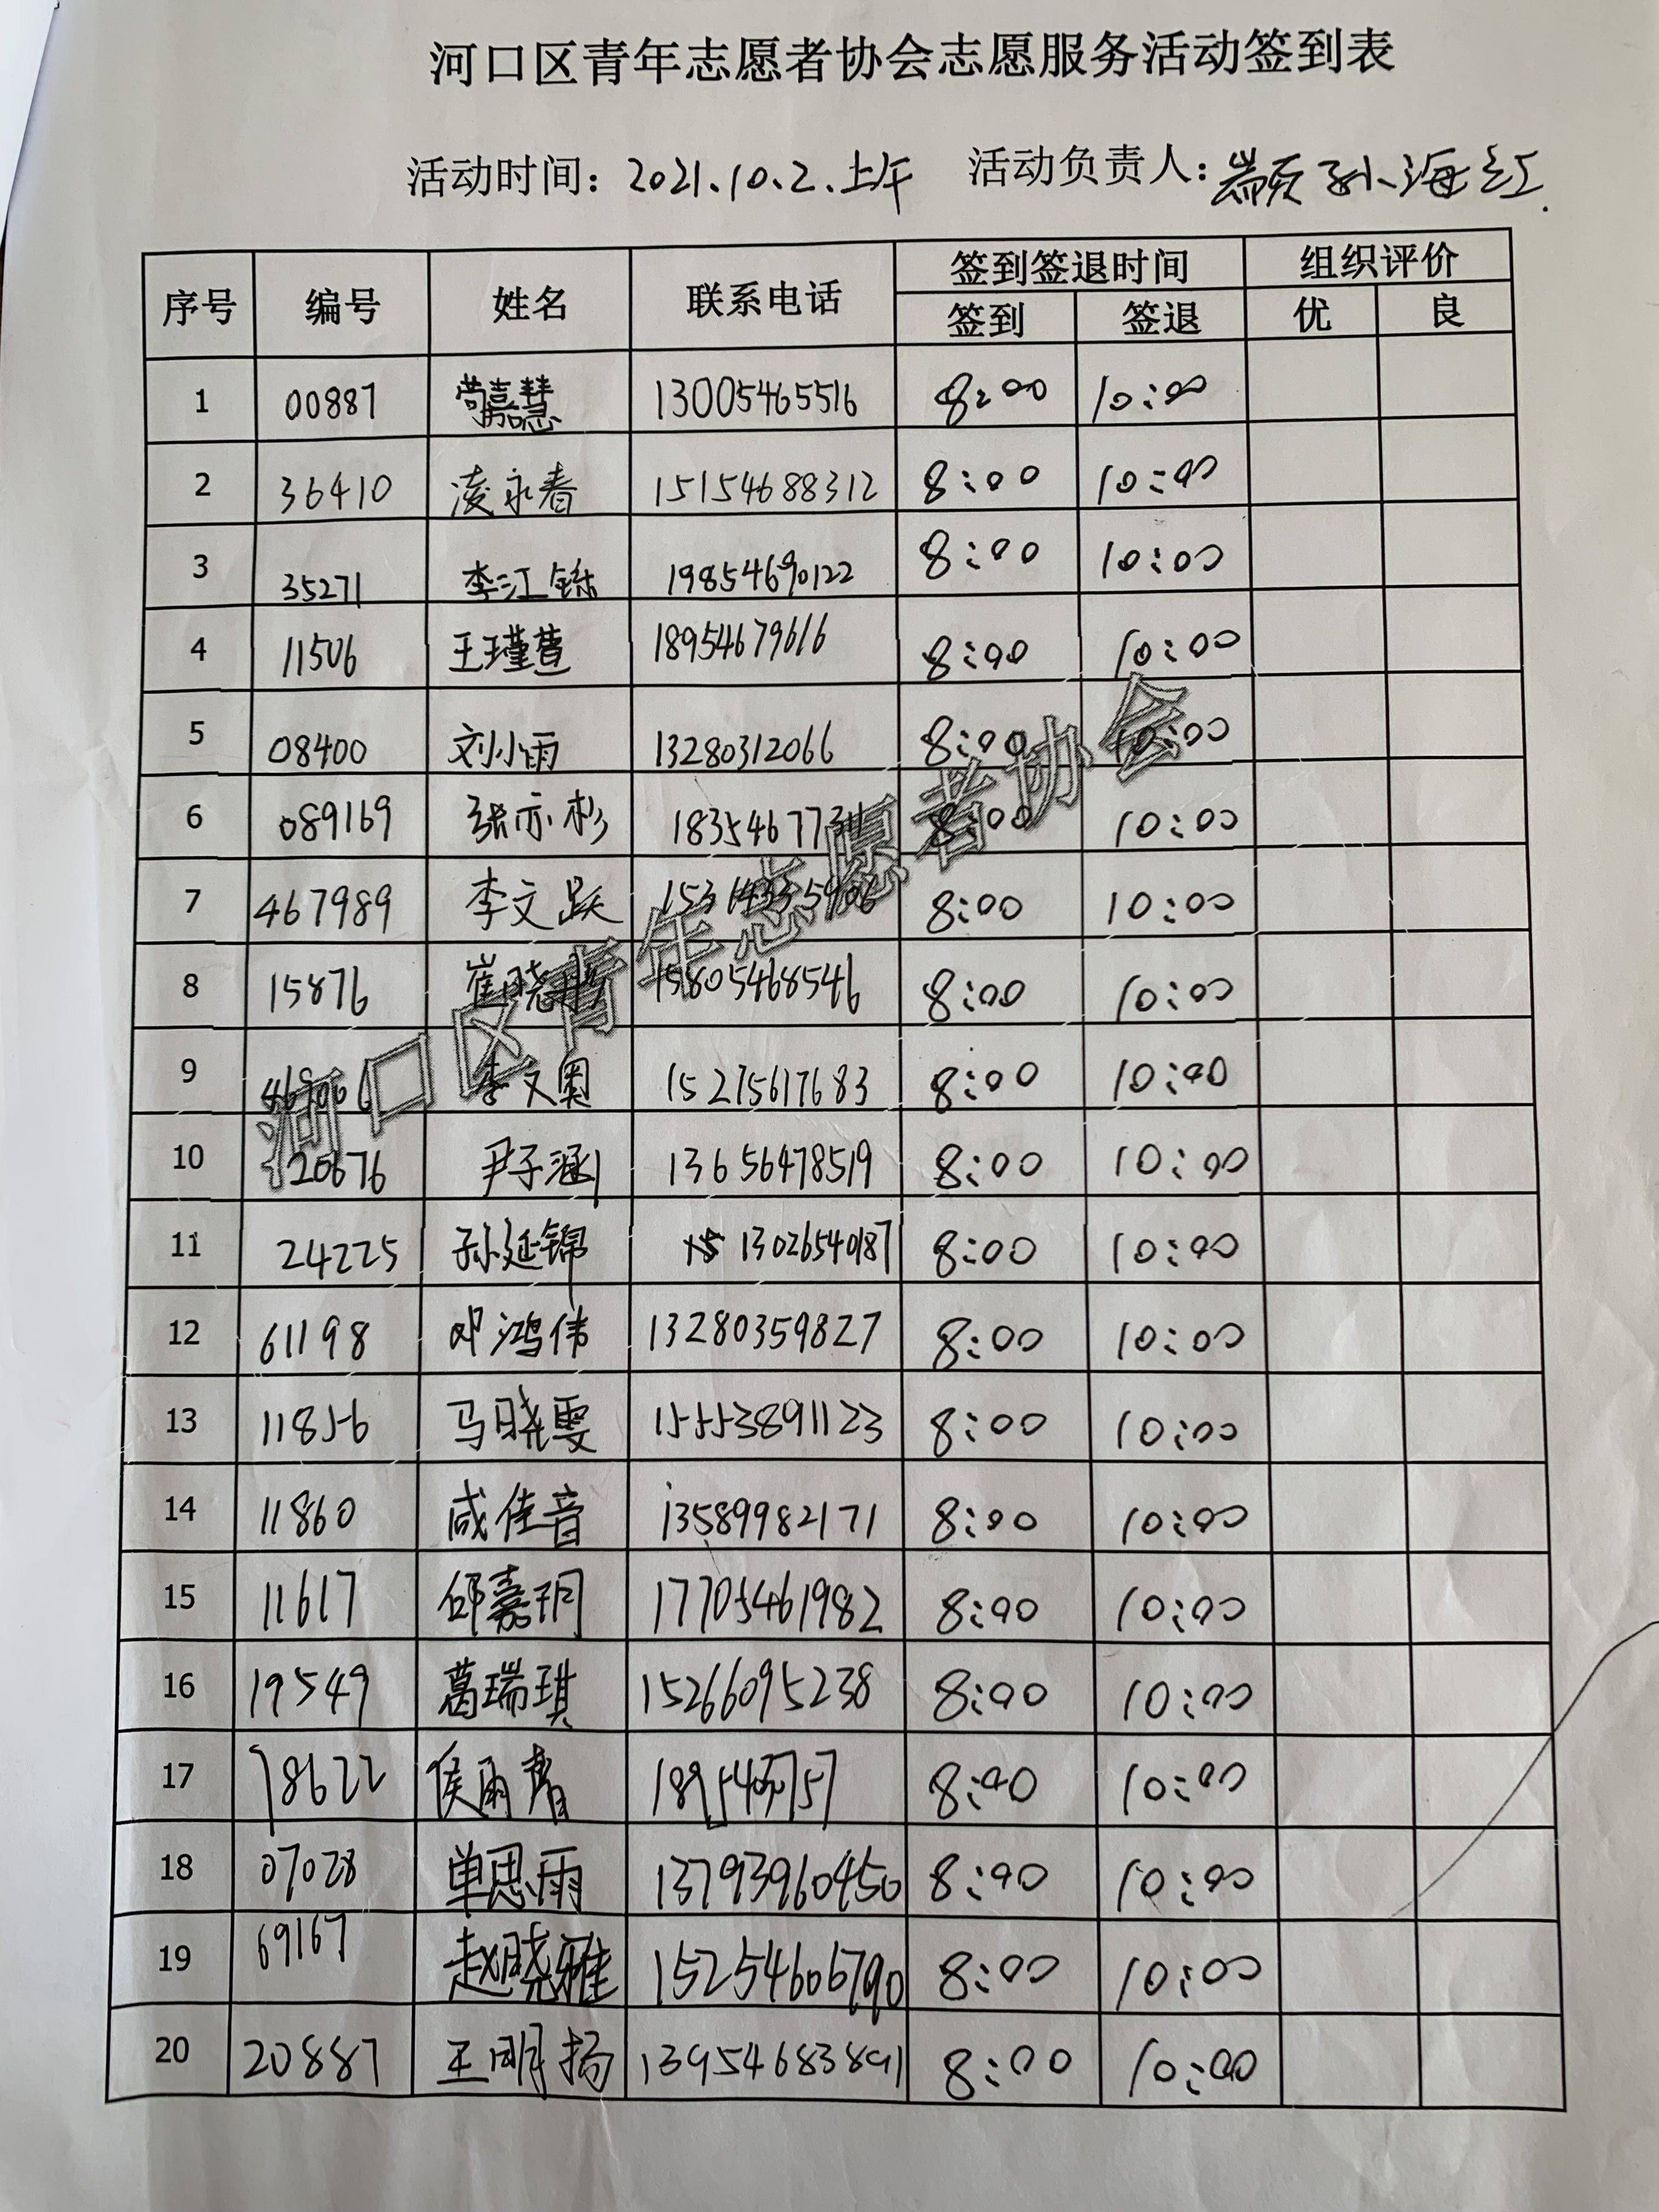 河口区青年志愿者协会志愿服务活动签到表
活动时间：2021.10.2.上午 活动负责人：颛孙海红.
序号 编号 姓名 联系电话 签到签退时间 组织评价
签到 签退 优 良
1 00887 嘉慧 13005465516 8:00 10:00
2 36410 凌永春 15154688312 8:00 10:00
3 35271 李江铄 19854690122 8:00 10:00
4 11506 王瑾萱 18954679616 8:00 10:00
5 08400 刘小雨 13280312066 8:00 10:00
6 089169 张亦杉 8:00 10:00
7 467989 李文跃 8:00 10:00
8 15876 崔晓彤 15805468546 8:00 10:00
9 李文奥 15275617683 8:00 10:00
10 20676 尹子涵 13656478519 8:00 10:00
11 24225 孙延锦 13026540187 8:00 10:00
12 61198 邓鸿伟 13280359827 8:00 10:00
13 11856 马晓雯 15553891123 8:00 10:00
14 11860 咸佳音 13589982171 8:00 10:00
15 11617 邱嘉玥 17705461982 8:00 10:00
16 19549 葛瑞琪 15266095238 8:00 10:00
17 78622 侯雨 8:00 10:00
18 07028 单思雨 13793960450 8:00 10:00
19 69167 赵晓雅 15254606790 8:00 10:00
20 20887 王明扬 13954683891 8:00 10:00
河口区青年志愿者协会